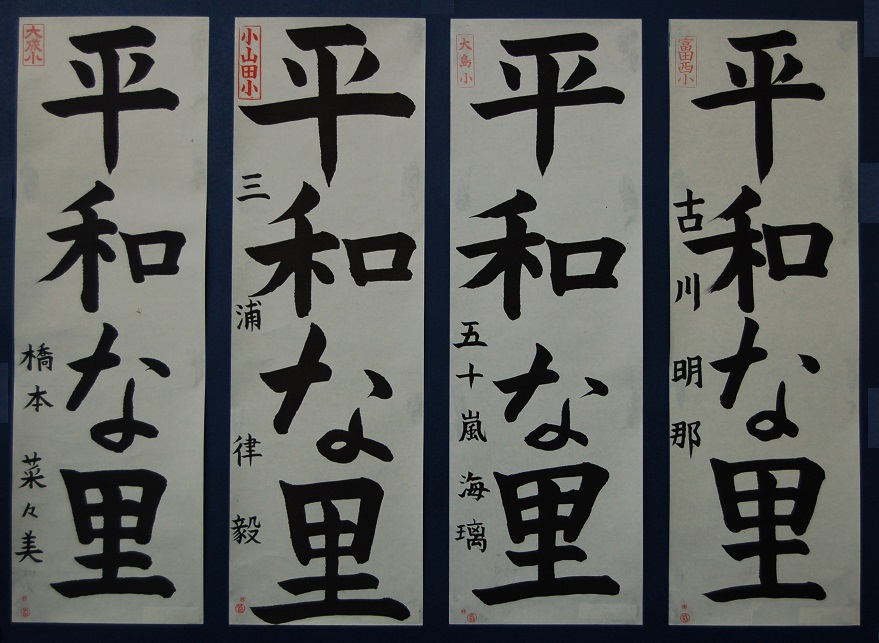 富田西小
平和な里
古川 明那
大島小
平和な里
五十嵐 海璃
小山田小
平和な里
三浦 律毅
大成小
平和な里
橋本 菜々美